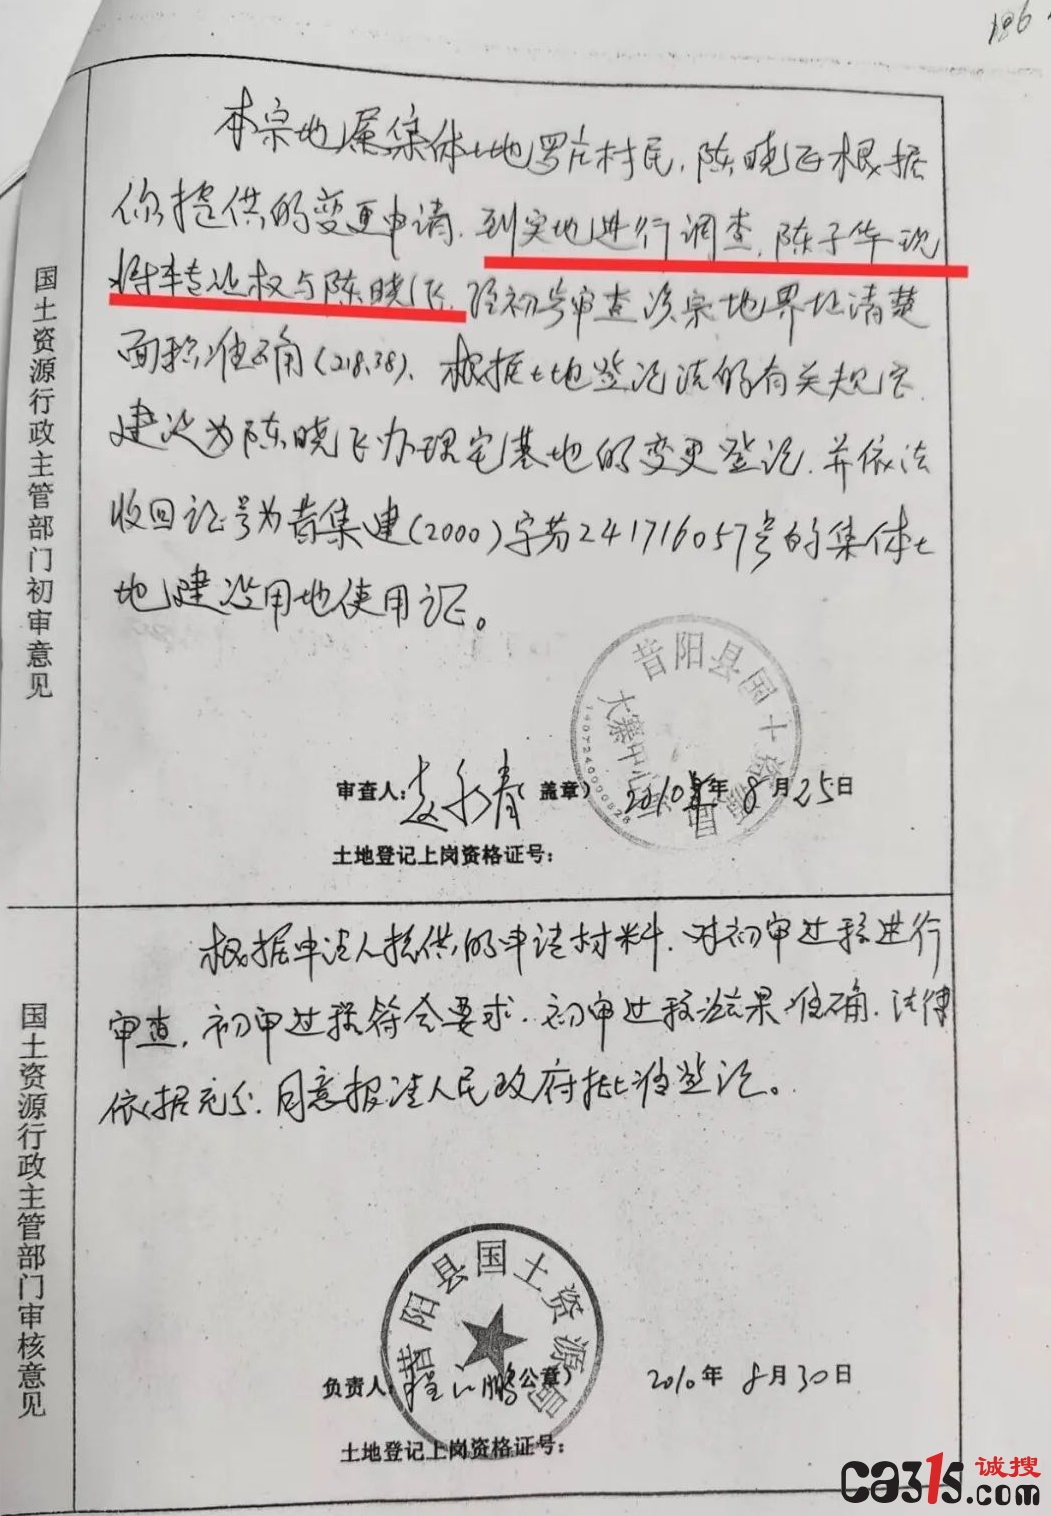 196
国土资源行政主管部门初审意见
本宗地属集体土地罗庄村民,陈晓飞根据
你提供的变更申请,到实地进行调查,陈子华现
将本专让权与陈晓飞,经初步审查该宗地界址清楚
面积准确(218.38),根据土地登记法的有关规定,
建议为陈晓飞办理宅基地的变更登记,并依法
收回证号为昔集建(2000)字第241716057号的集体土
地建设用地使用证。
昔阳县国土资源局
大寨中心
1407240000828
审查人: 赵 春 盖章) 2010年 8月25日
土地登记上岗资格证号:
国土资源行政主管部门审核意见
根据申请人提供的申请材料,对初审过程进行
审查,初审过程符合要求,初审过程结果准确,法律
依据充分,同意报请人民政府批准登记。
昔阳县国土资源局
负责人: 程 鹏 (公章) 2010年 8月30日
土地登记上岗资格证号:
ca315诚搜.com